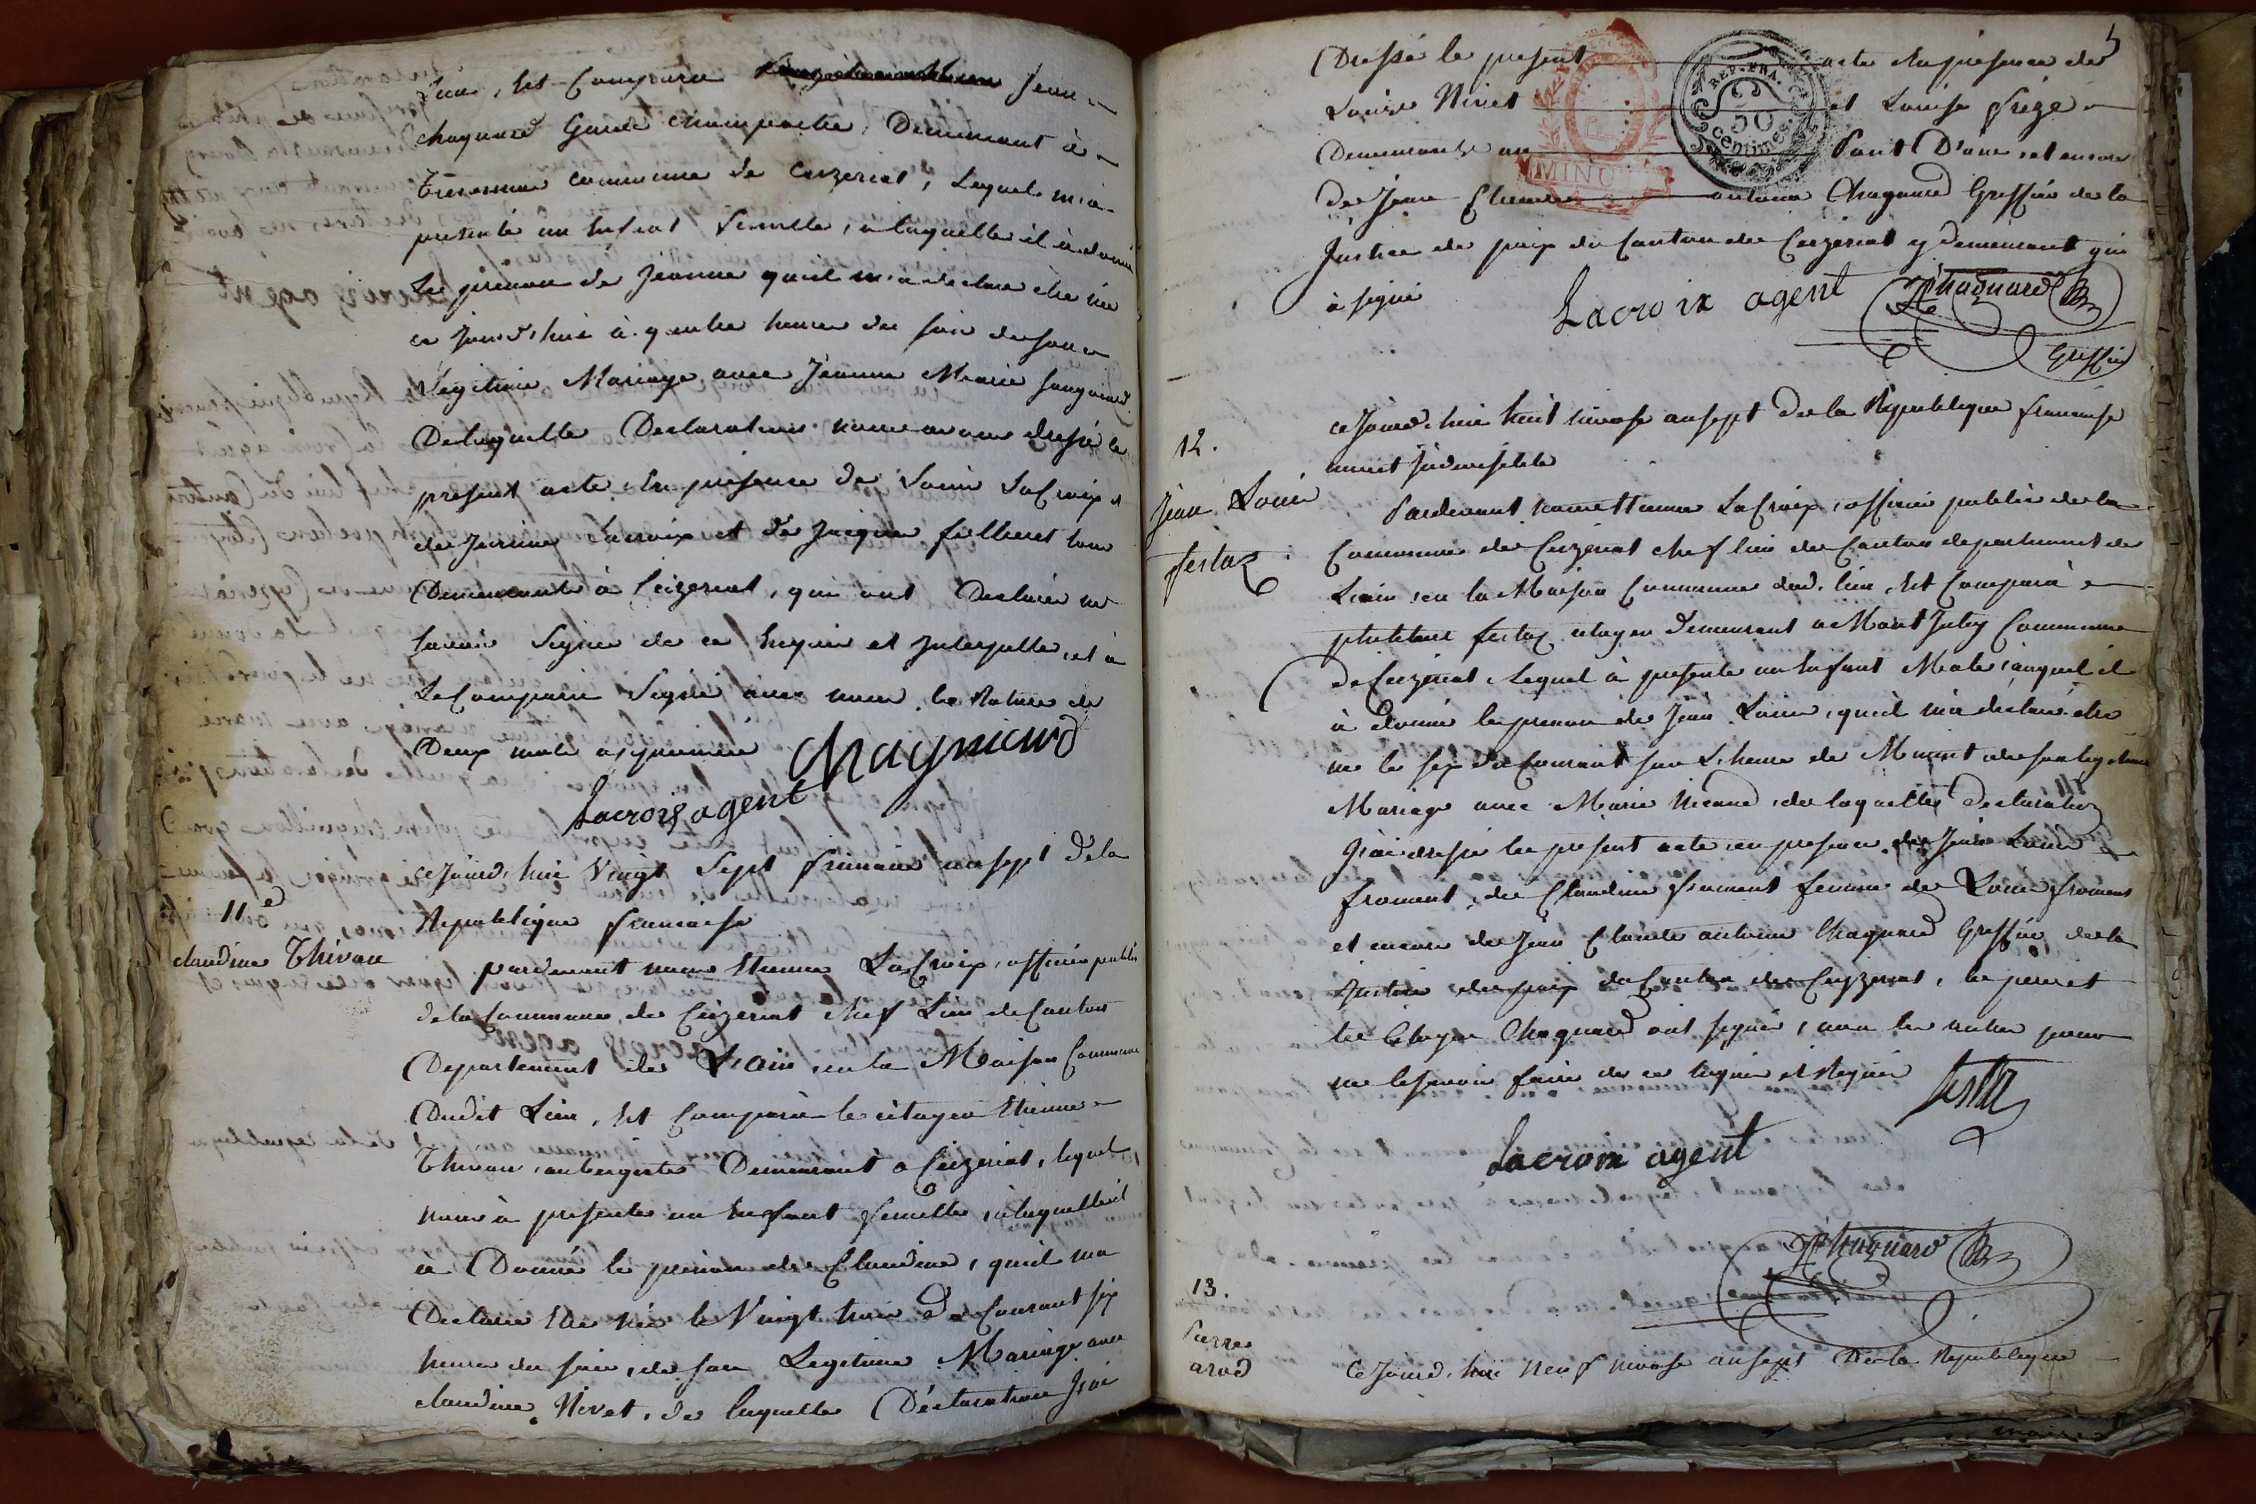 Lieu, Est Comparu Jean
chagnard Garde champestre, Demeurant à
Commune de Ceyzeriat, Lequel m'a
presenté un Enfant femelle, a laquelle il à donné
Le prenom de Jeanne qu'il m'a declaré être née
ce jourd'hui à quatre heures du soir de son
Legitime Mariage avec Jeanne Marie
De laquelle Declaration nous avons dressé le
present acte, En présence de Louis LaCroix et
de Lacroix et de Jacques fillieret tous
Demeurants à Ceizeriat, qui ont Declaré ne
savoir Signer de ce Enquis et Interpellés, et à
Le Comparu Signé avec nous, la Rature de
Deux mots approuvée Chagniard
Lacroix agent
11e
claudine Thivan
ceJourd'hui Vingt Sept frimaire an sept de la
Republique francaise
pardevant nous Etienne LaCroix, officié public
de la Commune de Ceizeriat chef Lieu de Canton
Departement de L'ain, en la Maison Commune
Dudit Lieu, Est Comparu le citoyen Etienne
Thivan, aubergiste Demeurant a Ceizeriat, lequel
nous à presenté un Enfant femelle, a laquelle il
a Donné le prenom de Claudine, qu'il ma
Declaré Etre née le Vingt trois du Courant six
heures du soir, de son Legitime Mariage avec
claudine Nivet, de laquelle Déclaration J'ai
5
Dressé le present acte En présence de
Louis Nivet et Louise frêge
Demeurants au Pont D'ain, et encore
de Jean Claude antoine Chagnard Greffier de la
Justice de paix du Canton de Ceyzeriat y demeurant qui
à signé
Lacroix agent Chagnard
Greffier
REP. FRA.
50
centimes
MINU
12.
Jean Louis
festaz
ceJourd'hui huit nivose an sept de la Republique francaise
une et Indivisible
Pardevant nous Etienne LaCroix, officié public de la
Commune de Ceizeriat chef lieu de Canton departement de
L'ain, en la Maison Commune dud. lieu, Est Comparu
philibert festaz citoyen Demeurant a Mont July Commune
de Ceizeriat, Lequel à presenté un Enfant Male, auquel il
à donné le prenom de Jean Louis, qu'il m'a déclaré etre
né le six du Courant sur L'heure de Minuit de son legitime
Mariage avec Marie Nicaud, de laquelle declaration
J'ai dressé le present acte, en presence de Jean Louis
froment, de Claudine froment femme de Louis froment
et encore de Jean Claude antoine Chagnard Greffier de la
Justice de paix du Canton de Ceyzeriat, le pere et
le Citoyen Chagnard ont signé, non les autres pour
ne le savoir faire de ce enquis et requis
festaz
Lacroix agent
Chagnard
13.
Pierre
arod
Ce Jourd'hui neuf nivose an sept De la Republique